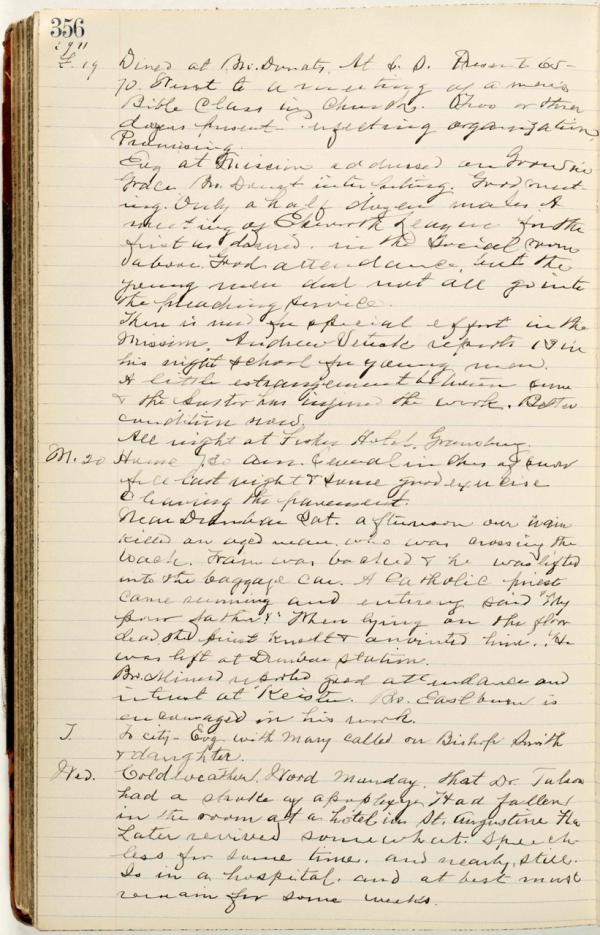 356
1911
F. 19 Dined at Bro. Donats. At S. S. Present 65-
70. Went to a meeting of a men's
Bible Class in Church. Two or three
dozen present effecting organization
Promising.
Evg at Mission addressed on Grow in
Grace. Bro. interpreting. Good meet
ing. Only a half dozen males. A
meeting of Epworth League for the
first as desired in the Social room
above. Good attendance, but the
young men did not all go into
the preaching service.
There is need for special effort in the
Mission. Andrew reports 18 in
his night school for young men.
A little estrangement between some
& the Pastor has injured the work. Better
condition now.
All night at Hotel, Greensburg.
M. 20 Home 7.30 a.m. Several inches of snow
fell last night & some good exercise
cleaning the pavement.
Near Dunbar Sat. afternoon our train
killed an aged man, who was crossing the
track. Train was backed & he was lifted
into the baggage car. A Catholic priest
came running and entering said "My
poor father". When lying on the floor
dead the priest knelt & anointed him. He
was left at Dunbar station.
Bro. Miner reported good attendance and
interest at Keister. Bro. Eastburn is
encouraged in his work.
T. To city - Evg with Mary called on Bishop Smith
& daughter.
Wed. Cold weather. Word Monday, that Dr.
had a stroke of apoplexy. Had fallen
in the room at a hotel in St. Augustine Fla
Later revived somewhat. Speech
less for some time, and nearly, still.
Is in a hospital, and at best must
remain for some weeks.